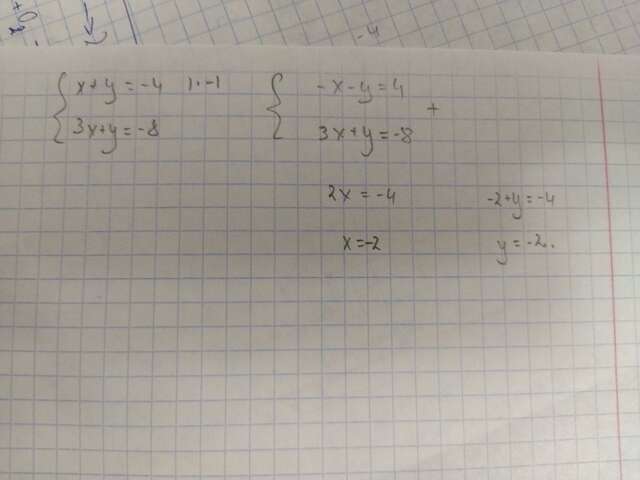 -4
x+y=-4 |·-1
3x+y=-8
-x-y=4
3x+y=-8
+
2x=-4
x=-2
-2+y=-4
y=-2.